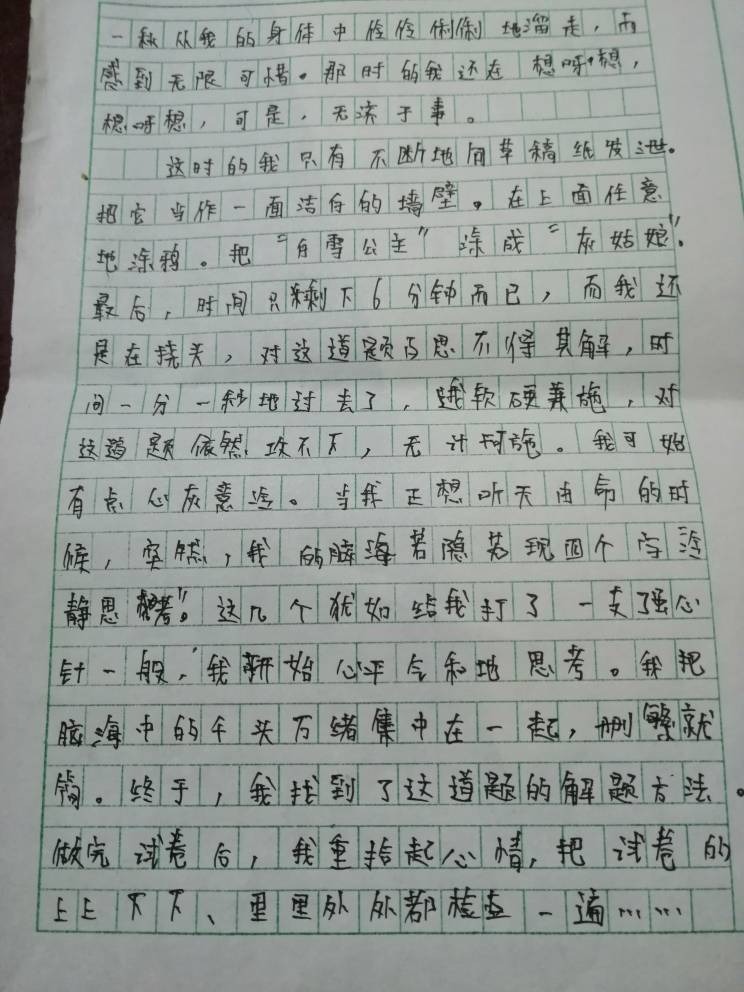 一秋从我的身体中伶伶俐俐地溜走，而
感到无限可惜。那时的我还在想呀想，
想呀想，可是，无济于事。
这时的我只有不断地用草稿纸发泄。
把它当作一面洁白的墙壁。在上面任意
地涂鸦。把“白雪公主”涂成“灰姑娘”。
最后，时间只剩下6分钟而已，而我还
是在挠头，对这道题百思不得其解，时
间一分一秒地过去了，我软硬兼施，对
这道题依然攻不下，无计可施。我可始
有点心灰意冷。当我正想听天由命的时
候，突然，我的脑海若隐若现四个字冷
静思考”。这几个犹如给我打了一支强心
针一般，我开始心平气和地思考。我把
脑海中的千头万绪集中在一起，删繁就
简。终于，我找到了这道题的解题方法。
做完试卷后，我重拾起心情，把试卷的
上上下下、里里外外都检查一遍……